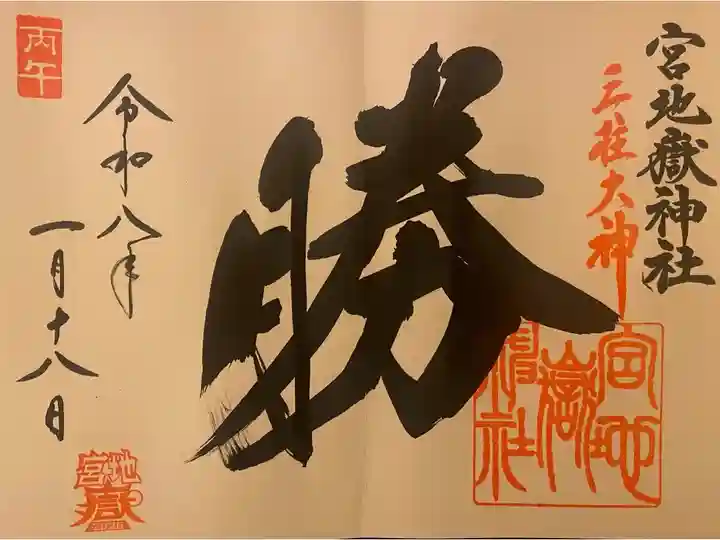 宮地嶽神社
三柱大神
勝
丙午
令和八年
一月十八日
宮地嶽神社
宮地嶽